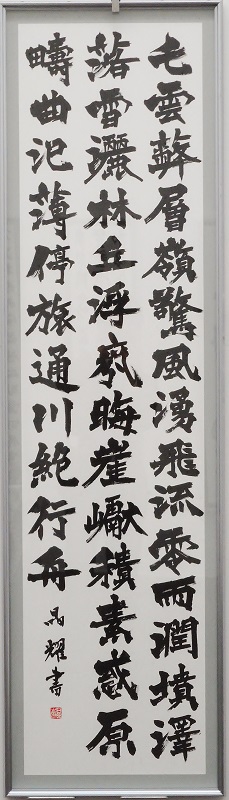 屯雲蔽層嶺驚風湧飛流零雨潤墳澤
落雪灑林丘浮氛晦崖巘積素惑原
疇曲汜薄停旅通川絶行舟
耀書